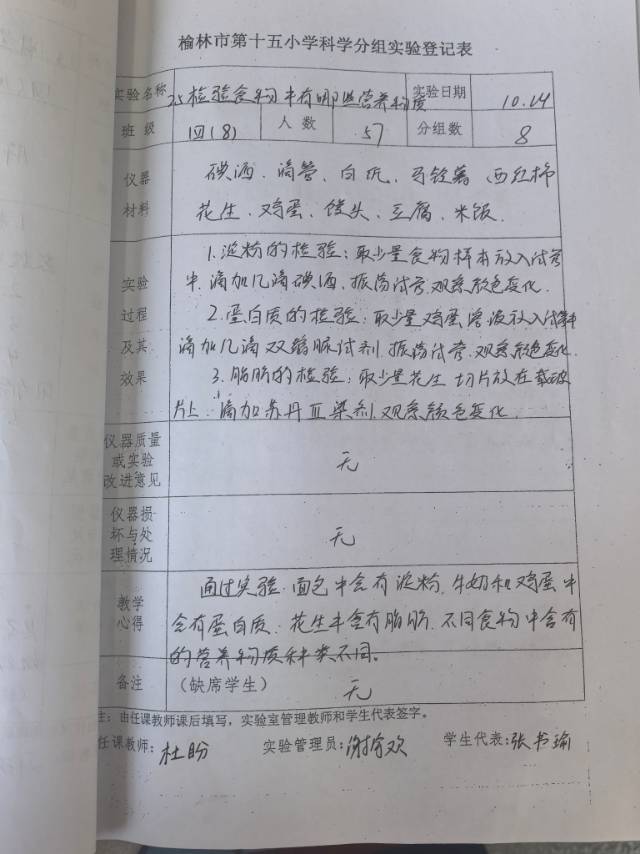 榆林市第十五小学科学分组实验登记表
实验名称 2.5检验食物中有哪些营养物质 实验日期 10.14
班级 四(8) 人数 57 分组数 8
仪器 碘酒、滴管、白纸、马铃薯、西红柿
材料 花生、鸡蛋、馒头、豆腐、米饭、
1.淀粉的检验：取少量食物样本放入试管
实验 中.滴加几滴碘酒.振荡试管.观察颜色变化.
过程 2.蛋白质的检验.取少量鸡蛋溶液放入试管中
及其 滴加几滴双缩脲试剂.振荡试管.观察颜色变化.
效果 3.脂肪的检验：取少量花生切片放在载玻
片上.滴加苏丹Ⅲ染剂.观察颜色变化.
仪器质量
或实验 无
改进意见
仪器损
坏与处 无
理情况
通过实验.面包中含有淀粉.牛奶和鸡蛋中
教学 含有蛋白质.花生中含有脂肪.不同食物中含有
心得 的营养物质种类不同。
备注 （缺席学生） 无
注：由任课教师课后填写，实验室管理教师和学生代表签字。
任课教师：杜盼 实验管理员：谢欢 学生代表：张书瑜